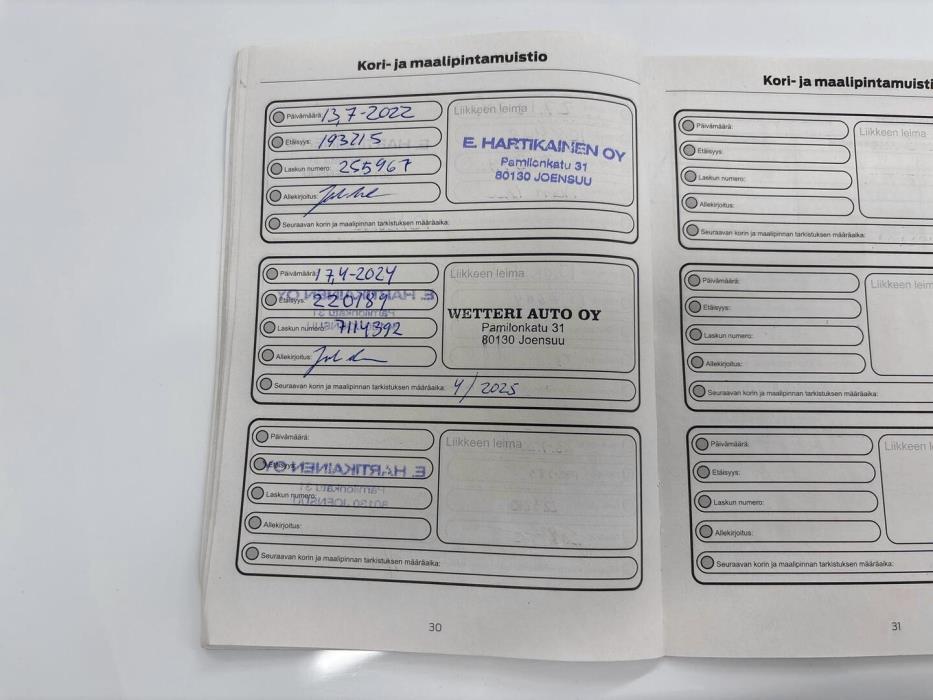 Kori- ja maalipintamuistio
Päivämäärä: 13,7-2022
Liikkeen leima
Etäisyys: 193215
Laskun numero: 255967
Allekirjoitus:
E. HARTIKAINEN OY
Pamilonkatu 31
80130 JOENSUU
Seuraavan korin ja maalipinnan tarkistuksen määräaika:
Päivämäärä: 17,4-2024
Liikkeen leima
Etäisyys: 220189
Laskun numero: 7114392
Allekirjoitus:
WETTERI AUTO OY
Pamilonkatu 31
80130 Joensuu
Seuraavan korin ja maalipinnan tarkistuksen määräaika: 4/2025
Päivämäärä:
Liikkeen leima
Etäisyys:
Laskun numero:
Allekirjoitus:
E. HARTIKAINEN OY
Pamilonkatu 31
80130 JOENSUU
Seuraavan korin ja maalipinnan tarkistuksen määräaika:
30
Kori- ja maalipintamuisti
Päivämäärä:
Liikkeen leima
Etäisyys:
Laskun numero:
Allekirjoitus:
Seuraavan korin ja maalipinnan tarkistuksen määräaika:
Päivämäärä:
Liikkeen leim
Etäisyys:
Laskun numero:
Allekirjoitus:
Seuraavan korin ja maalipinnan tarkistuksen määräaika:
Päivämäärä:
Liikkeen l
Etäisyys:
Laskun numero:
Allekirjoitus:
Seuraavan korin ja maalipinnan tarkistuksen määräaika:
31